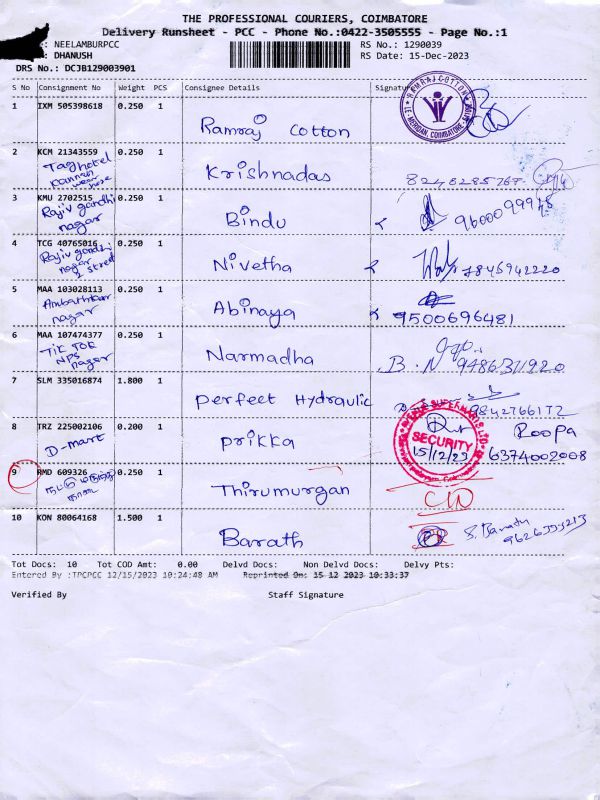 THE PROFESSIONAL COURIERS, COIMBATORE
Delivery Runsheet - PCC - Phone No.:0422-3505555 - Page No.:1
: NEELAMBURPCC RS No.: 1290039
: DHANUSH RS Date: 15-Dec-2023
DRS No.: DCJB129003901
S No Consignment No Weight PCS Consignee Details Signature
1 IXM 505398618 0.250 1 Ramraj Cotton
RAMRAJ COTTON
LE-MERIDIAN, COIMBATORE
2 KCM 21343559 0.250 1 Krishnadas
Taghotel
Kannan
near
3 KMU 2702515 0.250 1 Bindu
Rajiv gandhi
nagar
4 TCG 40765016 0.250 1 Nivetha 7845942220
Rajiv gandhi
nagar
1 street
5 MAA 103028113 0.250 1 Abinaya 9500696481
Ambathkar
nagar
6 MAA 107474377 0.250 1 Narmadha
TIK TOK
NPS
nagar
7 SLM 335016874 1.800 1 perfect Hydraulic
8 TRZ 225002106 0.200 1 Prikka Roopa
D-mart SECURITY
15/12/23 6374002008
9 RMD 609326 0.250 1 Thirumurgan
10 KON 80064168 1.500 1 Barath S. Barath
Tot Docs: 10 Tot COD Amt: 0.00 Delvd Docs: Non Delvd Docs: Delvy Pts:
Entered By :TPCPCC 12/15/2023 10:24:48 AM Reprinted On: 15 12 2023 10:33:37
Verified By Staff Signature